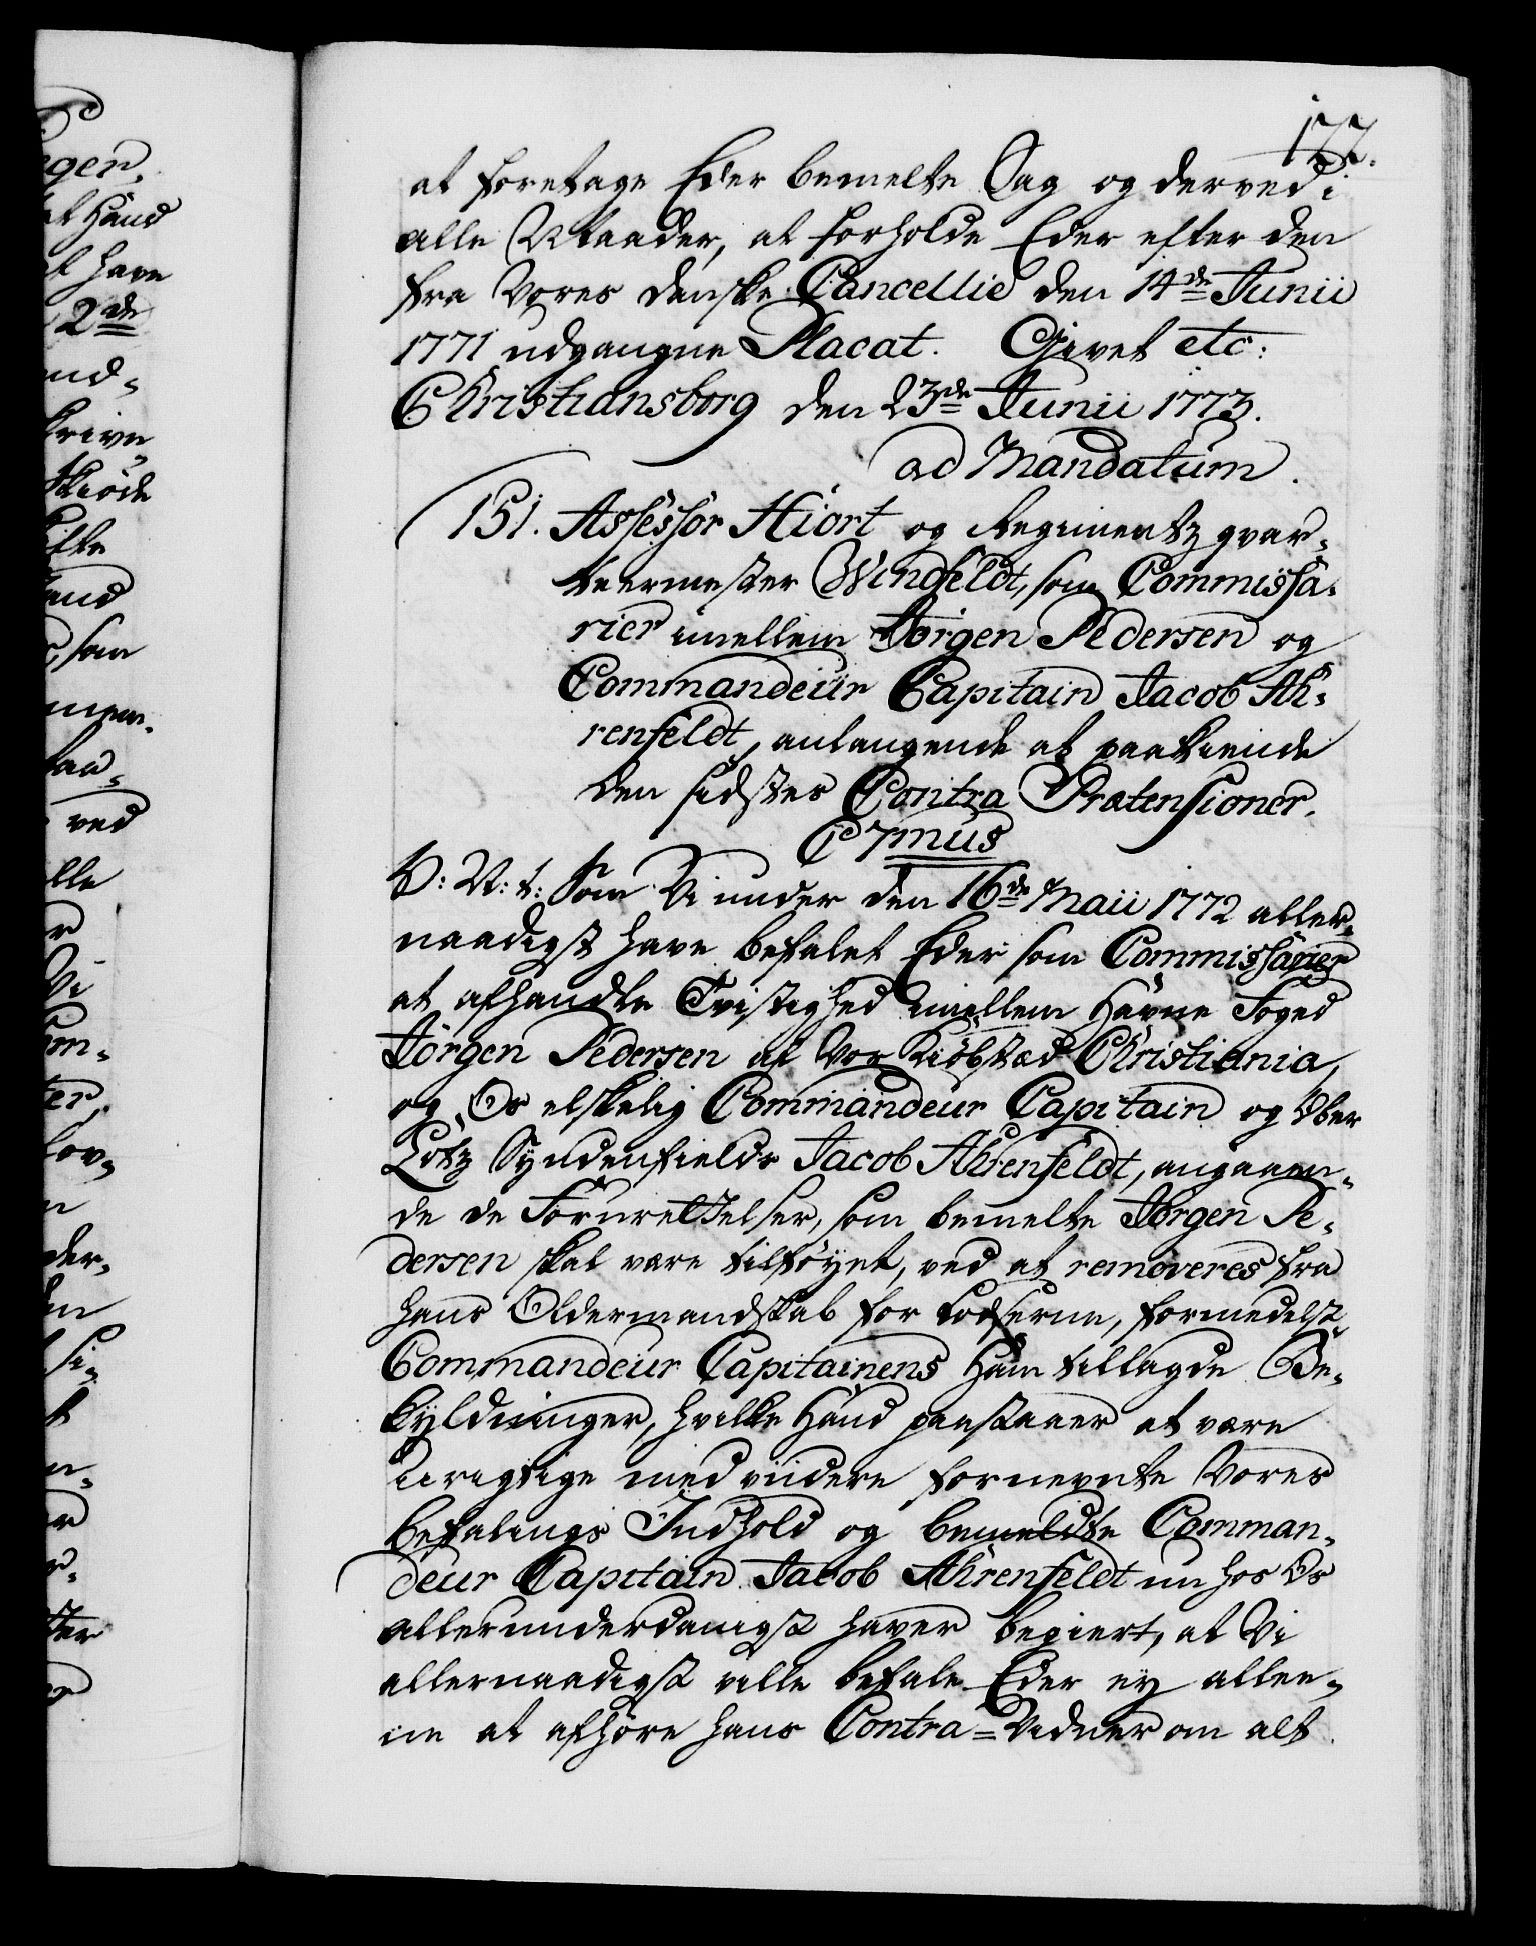 177.
at foretage Eder bemelte Sag og derved i
alle Maader, at forholde Eder efter den
fra Vores Danske Cancellie den 14de Junii
1771 udgangne Placat. Givet etc:
Christiansborg den 23de Junii 1773.
ad Mandatum.
151. Assessor Hiort og Regimentz qvar-
teermester Windfeldt, som Commissa-
rier imellem Jørgen Pedersen og
Commandeur Capitain Jacob Ah-
renfeldt, anlangende at paakiende
den sidstes Contra Prætensioner.
C 7mus
V: N: t: Som Vi under den 16de Maii 1772 aller-
naadigst have befalet Eder som Commissarier
at afhandle Tvistighed imellem Havne Foged
Jørgen Pedersen af Vor Kiøbstæd Christiania,
og Os elskelig Commandeur Capitain og Ober
Lotz Syndenfields Jacob Ahrenfeldt, angaaen-
de de Fornrettelser, som bemelte Jørgen Pe-
dersen skal være tilføyet, ved at removeres fra
hans Oldermandskab for Lodserne, formedelst
Commandeur Capitainens ham tillagde Be-
skyldninger, hvilke Hand paastaaer at være
urigtige med viidere fornevnte Vores
befalings Indhold og bemeldte Comman-
deur Capitain Jacob Ahrenfeldt nu hos Os
allerunderdanigst haver begiert, at Vi
allernaadigst ville befale Eder ey allee-
ne at afhøre hans Contra-Vidner om alt